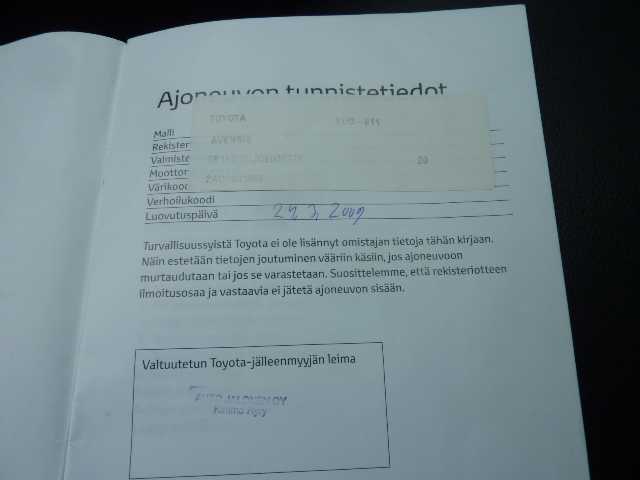 Ajoneuvon tunnistetiedot
TOYOTA
Malli
AVENSIS
Rekister
Valmiste
20
Moottor
Värikoor
Verhoilukoodi
Luovutuspäivä
Turvallisuussyistä Toyota ei ole lisännyt omistajan tietoja tähän kirjaan.
Näin estetään tietojen joutuminen vääriin käsiin, jos ajoneuvoon
murtaudutaan tai jos se varastetaan. Suosittelemme, että rekisteriotteen
ilmoitusosaa ja vastaavia ei jätetä ajoneuvon sisään.
Valtuutetun Toyota-jälleenmyyjän leima